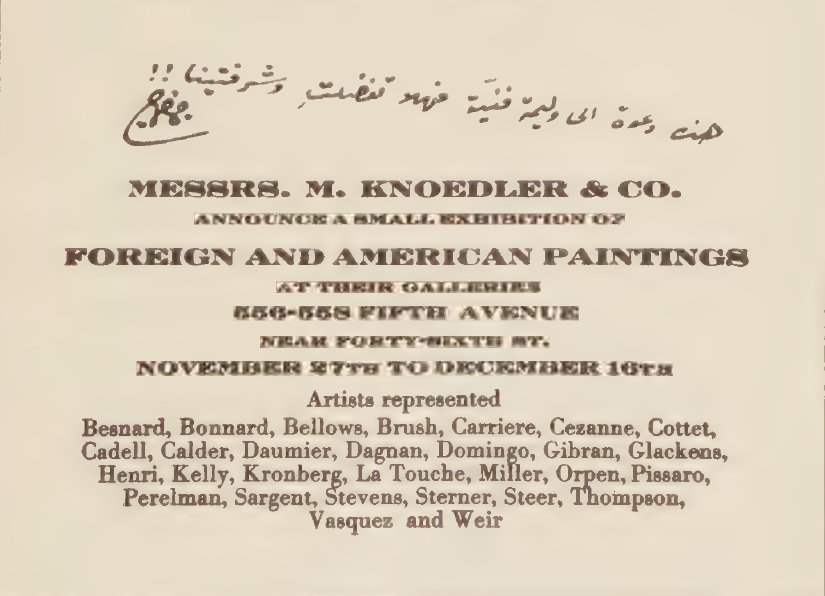 هذه دعوة الى وليمة فنيّة فهلا تفضلتِ وشرفتينا !!
MESSRS. M. KNOEDLER & CO.
ANNOUNCE A SMALL EXHIBITION OF
FOREIGN AND AMERICAN PAINTINGS
AT THEIR GALLERIES
556-558 FIFTH AVENUE
NEAR FORTY-SIXTH ST.
NOVEMBER 27TH TO DECEMBER 16TH
Artists represented
Besnard, Bonnard, Bellows, Brush, Carriere, Cezanne, Cottet,
Cadell, Calder, Daumier, Dagnan, Domingo, Gibran, Glackens,
Henri, Kelly, Kronberg, La Touche, Miller, Orpen, Pissaro,
Perelman, Sargent, Stevens, Sterner, Steer, Thompson,
Vasquez and Weir